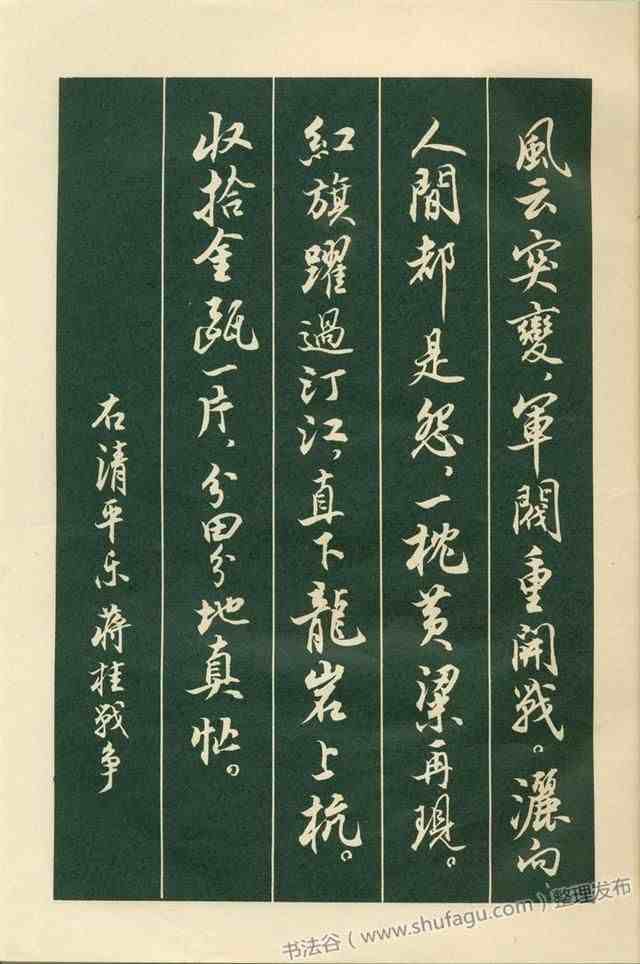 風云突變，軍閥重開戰。灑向
人間都是怨，一枕黄梁再現。
紅旗躍過汀江，直下龍岩上杭。
收拾金甌一片，分田分地真忙。
右清平乐蒋桂战争
书法谷（www.shufagu.com）整理发布